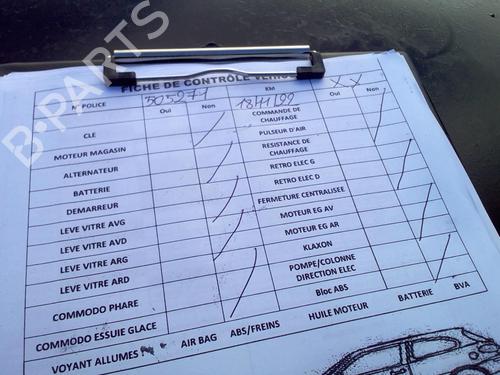 FICHE DE CONTRÔLE
N° POLICE 505271 EM
Oui Non Oui Non
CLE COMMANDE DE CHAUFFAGE
MOTEUR MAGASIN PULSEUR D'AIR
ALTERNATEUR RESISTANCE DE CHAUFFAGE
BATTERIE RETRO ELEC G
DEMARREUR RETRO ELEC D
LEVE VITRE AVG FERMETURE CENTRALISEE
LEVE VITRE AVD MOTEUR EG AV
LEVE VITRE ARG MOTEUR EG AR
LEVE VITRE ARD KLAXON
COMMODO PHARE POMPE/COLONNE DIRECTION ELEC
COMMODO ESSUIE GLACE Bloc ABS
VOYANT ALLUMES AIR BAG ABS/FREINS HUILE MOTEUR BATTERIE BVA
B-PARTS